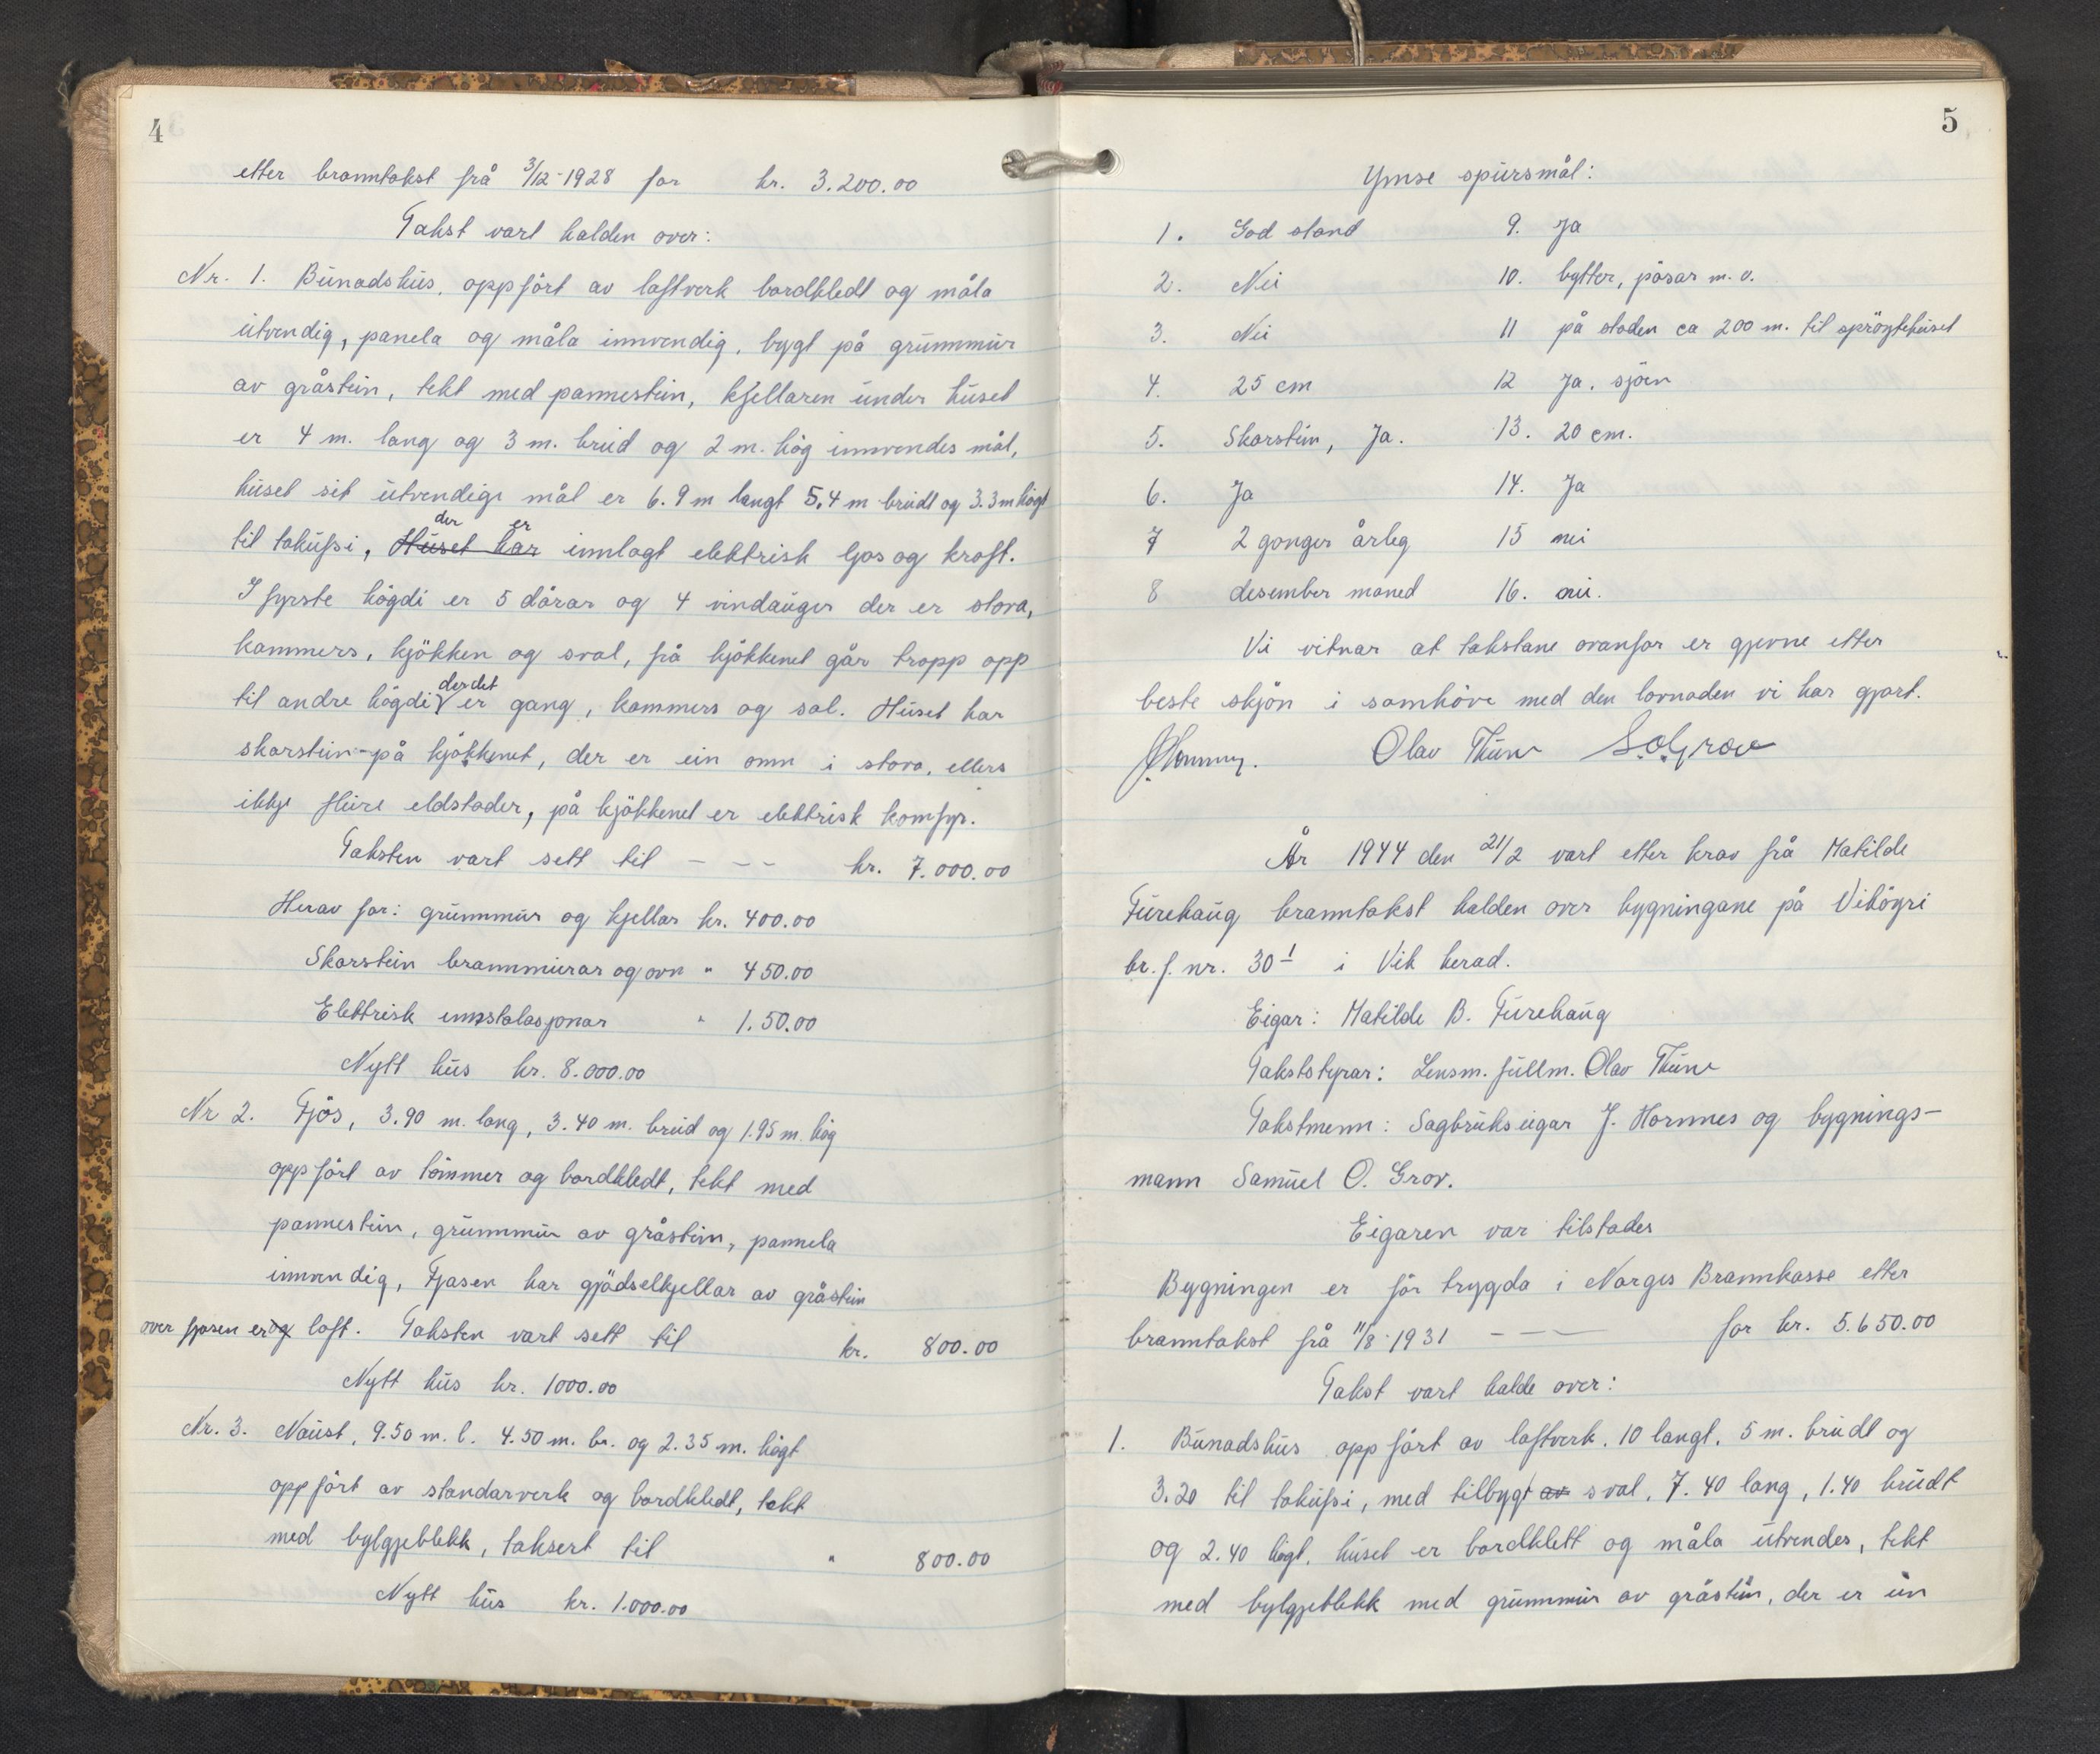 4
etter branntakst frå 3/12-1928 for kr. 3.200.00
Takst vart halden over:
Nr. 1. Bunadshus, oppført av laftverk bordkledt og måla
utvendig, panela og måla innvendig, bygt på grunnmur
av gråstein, tekt med pannestein, kjellaren under huset
er 4 m. lang og 3 m. breid og 2 m. høg innvendes mål,
huset sit utvendige mål er 6.9 m langt 5.4 m breidt og 3.3 m høgt
der er
til takufsi, Huset har innlagt elektrisk ljos og kraft.
I fyrste høgdi er 5 dørar og 4 vindauger der er stova,
kammers, kjøkken og sval, frå kjøkkenet går tropp opp
der det
til andre høgdi er gang, kammers og sal. Huset har
skorstein på kjøkkenet, der er ein omn i stova, ellers
ikkje fleire eldstader, på kjøkkenet er elektrisk komfyr.
Taksten vart sett til - - - kr. 7.000.00
Herav for: grunnmur og kjellar kr. 400.00
Skorstein brannmurar og ovn " 450.00
Elektrisk innstalasjonar " 1.50.00
Nytt hus kr. 8.000.00
Nr 2. Fjøs, 3.90 m. lang, 3.40 m. breid og 1.95 m. høg
oppført av tømmer og bordkledt, tekt med
pannestein, grunnmur av gråstein, pannela
innvendig, Fjøsen har gjødselkjellar av gråstein
over fjøsen er og loft. Taksten vart sett til kr. 800.00
Nytt hus kr. 1000.00
Nr. 3. Naust, 9.50 m. l. 4.50 m. br. og 2.35 m. høgt
oppført av standarverk og bordkledt, tekt
med bylgjeblekk, taksert til " 800.00
Nytt hus kr. 1.000.00
5
Ymse spursmål:
1. God stand 9. Ja
2. Nei 10. bytter, pøsar m. v.
3. Nei 11 på staden ca 200 m. til sprøytehuset
4. 25 cm 12 Ja, sjøen
5. Skorstein, Ja. 13. 20 cm.
6. Ja 14. Ja
7 2 gonger årleg 15 nei
8 desember månad 16. nei.
Vi vitnar at takstane ovanfor er gjevne etter
beste skjøn i samhøve med den lovnaden vi har gjort.
J. Hornnes. Olav Thune S.O.Grov
År 1944 den 21/2 vart etter krav frå Matilde
Furehaug branntakst halden over bygningane på Vikøyri
br. f. nr. 30 1 i Vik herad.
Eigar: Matilde B. Furehaug
Takststyrar: Lensm. fullm. Olav Thune
Takstmenn: Sagbrukseigar J. Hornnes og bygnings-
mann Samuel O. Grov.
Eigaren var tilstades
Bygningen er før trygda i Norges Brannkasse etter
branntakst frå 11/8-1931 - - - for kr. 5.650.00
Takst vart halde over:
1. Bunadshus oppført av laftverk. 10 langt, 5 m. breidt og
3.20 til takufsi, med tilbygt av sval, 7.40 lang, 1.40 breidt
og 2.40 høgt, huset er bordklett og måla utvendes, tekt
med bylgjeblekk med grunnmur av gråstein, der er ein